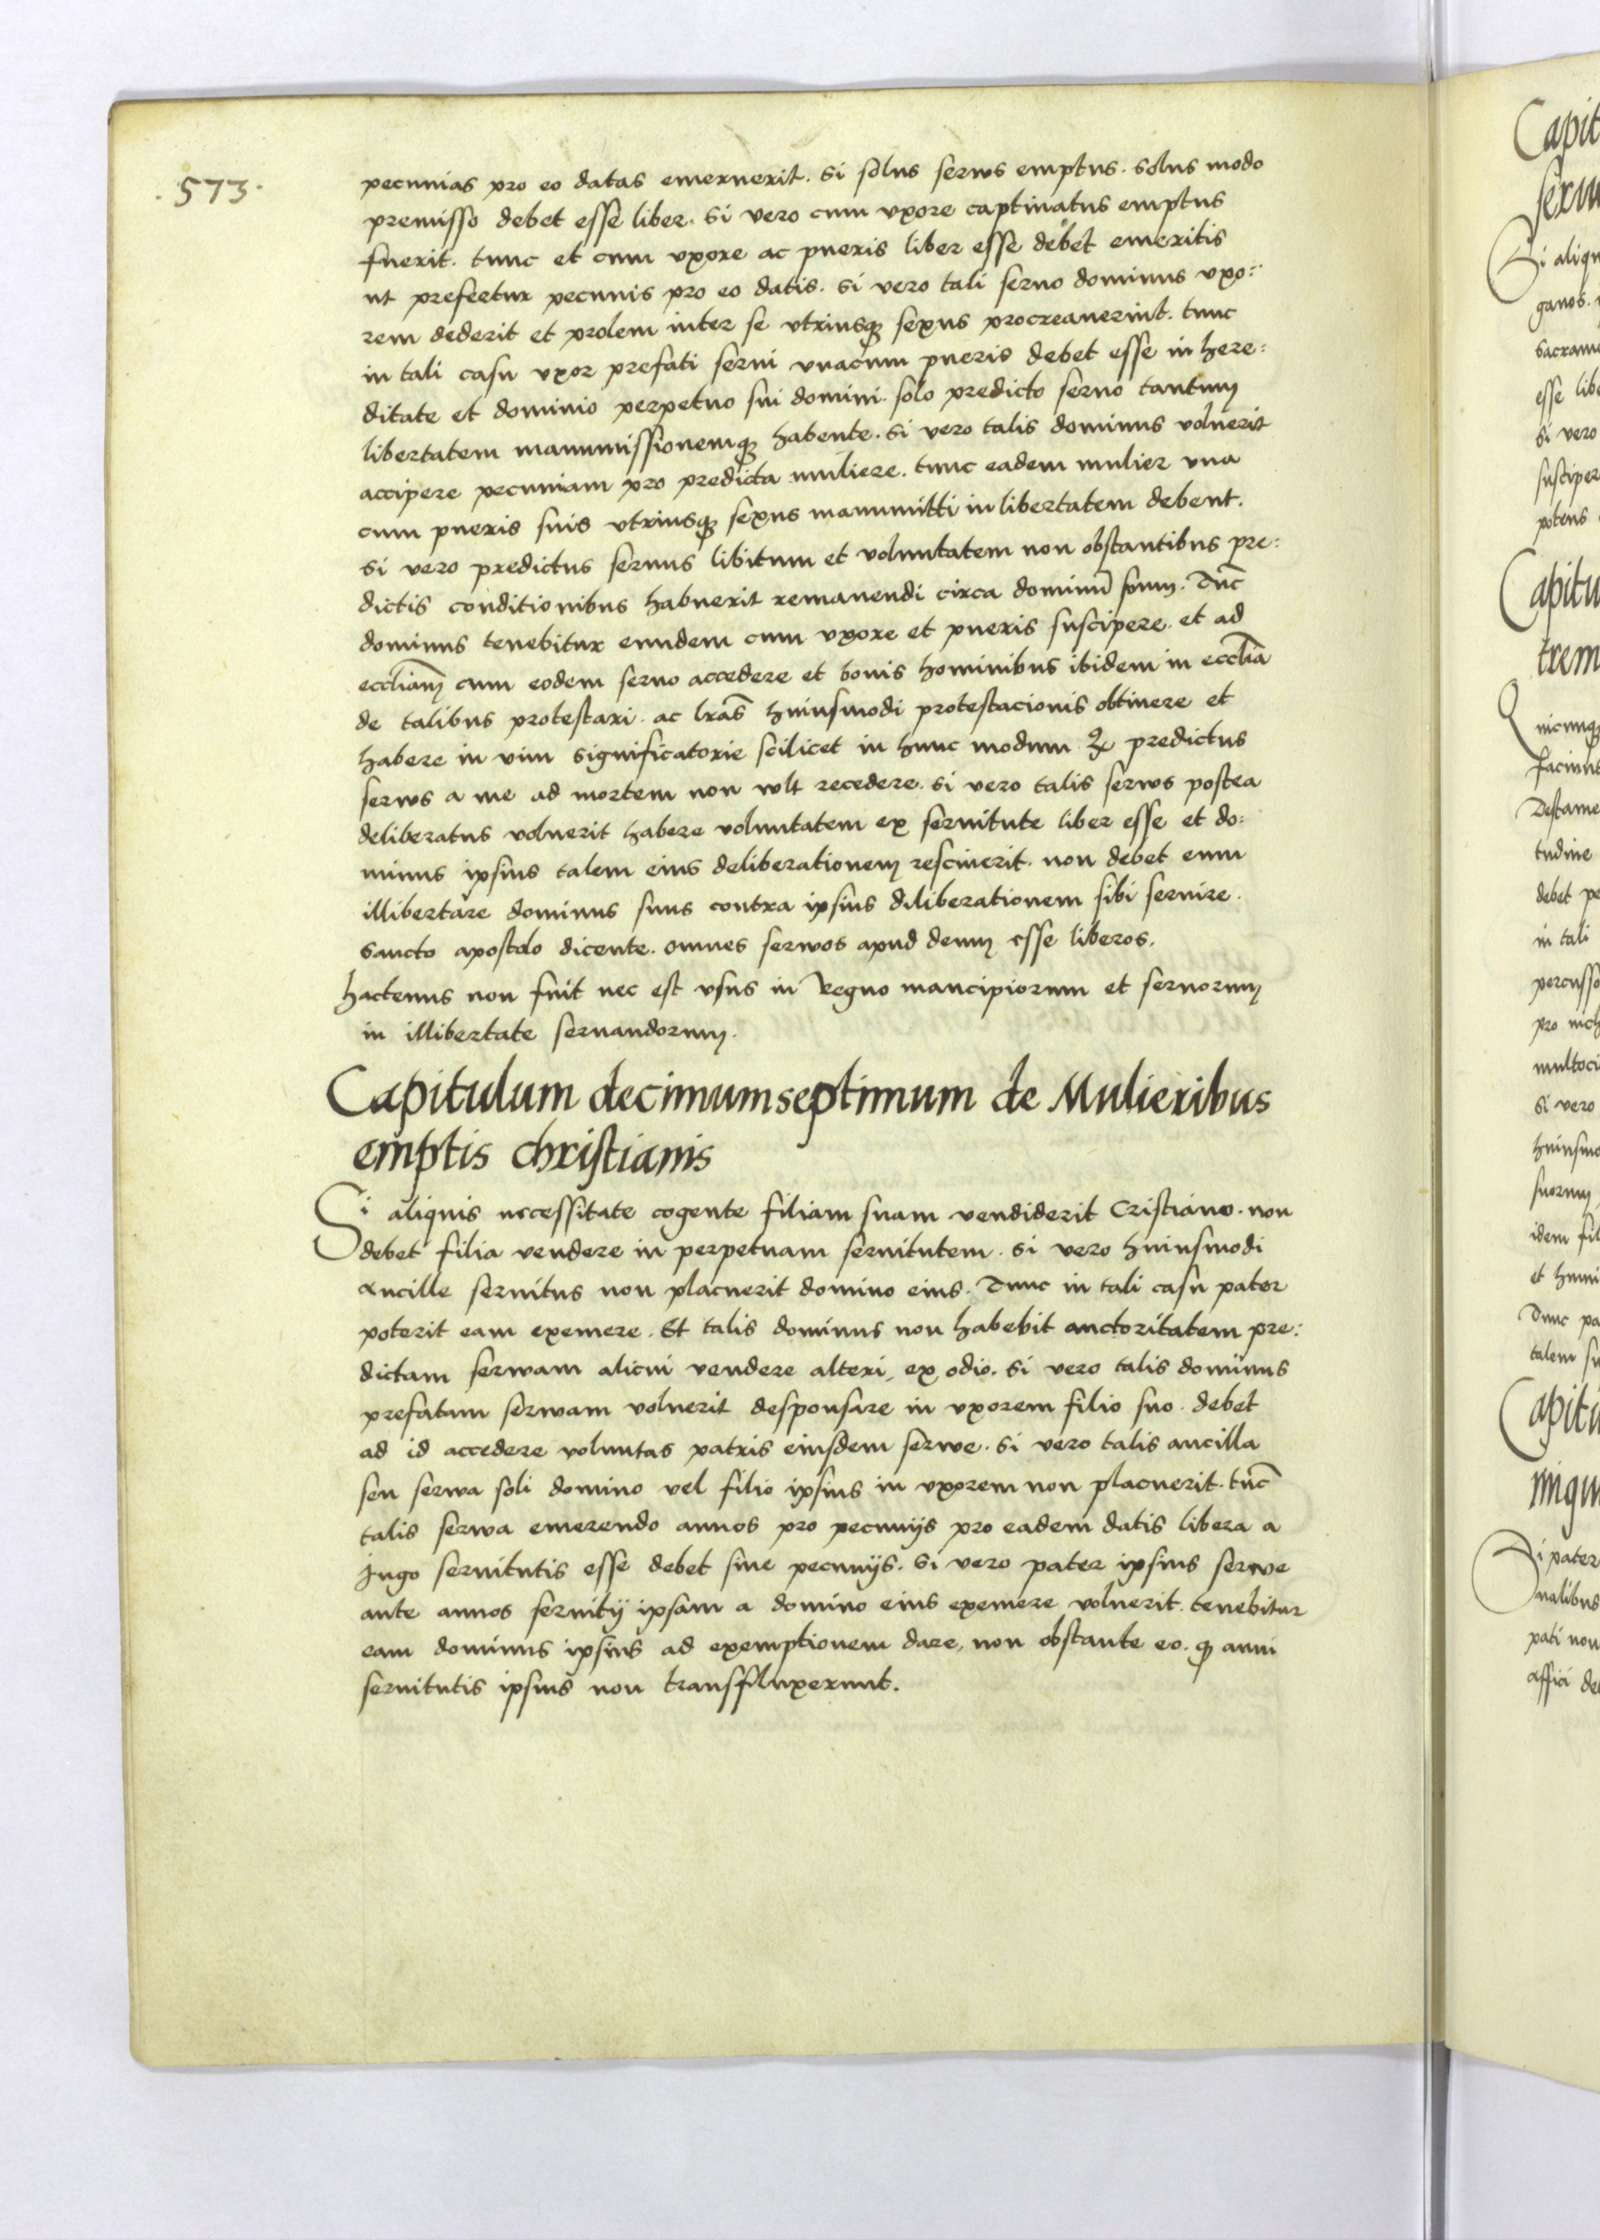 .573.
pecunias pro eo datas emeruerit. si solus serws emptus. solus modo
premisso debet esse liber. si vero cum vxore captiuatus emptus
fuerit. tunc et cum vxore ac pueris liber esse debet emeritis
ut prefertur pecunis pro eo datis. si vero tali seruo dominus vxo:
rem dederit et prolem inter se vtriusqꝫ sexus procreauerint. tunc
in tali casu vxor prefati serui vnacum pueris debet esse in here:
ditate et dominio perpetuo sui domini. solo predicto seruo tantum
libertatem manumissionemqꝫ habente. si vero talis dominus voluerit
accipere pecuniam pro predicta muliere. tunc eadem mulier vna
cum pueris suis vtriusqꝫ sexus manumitti in libertatem debent.
si vero predictus seruus libitum et voluntatem non obstantibus pre:
dictis conditionibus habuerit remanendi circa dominū suum. Tūc
dominus tenebitur eundem cum vxore et pueris suscipere. et ad
eccliam̄ cum eodem seruo accedere et bonis hominibus ibidem in eccliā
de talibus protestari. ac lrās huiusmodi protestacionis obtinere et
habere in vim significatorie scilicet in hunc modum. predictus
serws a me ad mortem non wlt recedere. si vero talis serws postea
deliberatus voluerit habere voluntatem ex seruitute liber esse et do:
minus ipsius talem eius deliberationem resciuerit. non debet eum
illibertare dominus suus contra ipsius diliberationem sibi seruire.
sancto apostolo dicente. omnes serwos apud deum esse liberos.
hactenus non fuit nec est vsus in Regno mancipiorum et seruorum
in illibertate seruandorum.
Capitulum decimumseptimum de Mulieribus
emptis christianis
Si aliquis necessitate cogente filiam suam vendiderit Cristiano. non
debet filia vendere in perpetuam seruitutem. si vero huiusmodi
Ancille seruitus non placuerit domino eius. Tunc in tali casu pater
poterit eam exemere. Et talis dominus non habebit auctoritatem pre:
dictam serwam alicui vendere alteri, ex odio. si vero talis dominus
prefatam serwam voluerit desponsare in vxorem filio suo. debet
ad id accedere voluntas patris eiusdem serwe. si vero talis ancilla
seu serwa soli domino vel filio ipsius in vxorem non placuerit. tūc
talis serwa emerendo annos pro pecunijs pro eadem datis libera a
Jugo seruitutis esse debet sine pecunijs. si vero pater ipsius serwe
ante annos seruitij ipsam a domino eius exemere voluerit. tenebitur
eam dominus ipsius ad exemptionem dare, non obstante eo. qꝫ anni
seruitutis ipsius non transfluxerunt.
Capit
Si aliqu
ganos.
sacrame
esse libe
si vero
suscipere
potens
Capitu
trem
Quicunqꝫ
faciunt
Testame
tudine
debet pe
in tali
percusso
multoci
si vero
huiusmo
suorum
idem fil
et humi
Tunc pa
talem su
Capitu
Si pater
nalibus
pati non
affici de